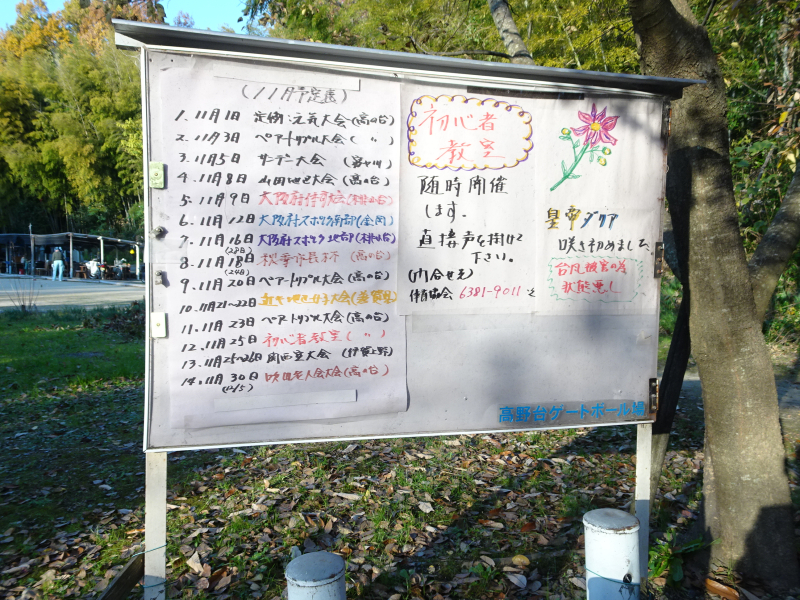 (11月予定表)
1. 11月1日 定例・元気大会(高の台)
2. 11月3日 ペアートリプル大会( 〃 )
3. 11月5日 サンデン大会
4. 11月8日 山田地区大会(高の台)
5. 11月9日 大阪府
6. 11月12日 大阪府スポレク南部
7. 11月16日 大阪府スポレク北部(桃山台)
(28日)
8. 11月18日 秋季市長杯(高の台)
(24日)
9. 11月20日 ペアートリプル大会(高の台)
10. 11月21~22日 近き地区女子大会(滋賀県)
11. 11月23日 ペアートリプル大会(高の台)
12. 11月25日 初心者教室( 〃 )
13. 11月25~26日 関西
大会(伊賀上野)
14. 11月30日 吹田老人会大会(高の台)
初心者
教室
随時開催
します。
直接声を掛けて
下さい。
(問合せ先)
体育協会 6381-9011
皇帝ダリア
咲き初めました
台風被害の為
状態悪し
高野台ゲートボール場